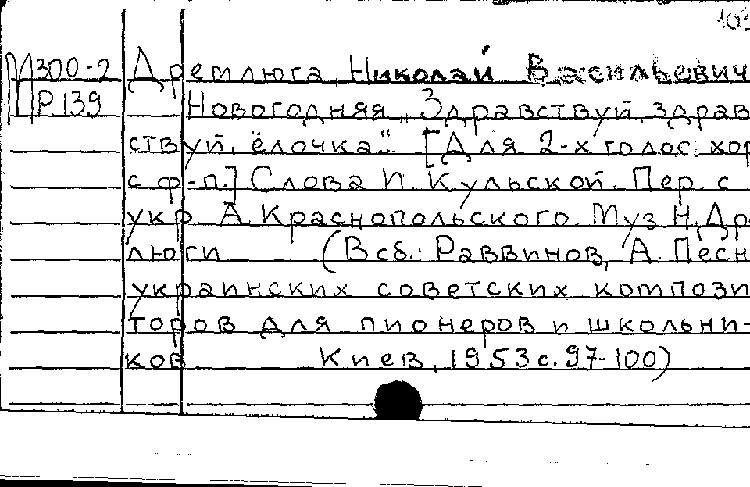 103
М300-2 Дремлюга, Николай Васильевич
Р139 Новогодняя „Здравствуй, здрав
ствуй, ёлочка." [Для 2-х голос. хор
с ф-п.] Слова И. Кульской. Пер. с
укр. А. Краснопольского. Муз. Н. Дре
люги (В сб.: Раввинов, А. Песн
украинских советских компози
торов для пионеров и школьни-
ков Киев, 1953 с. 97-100)